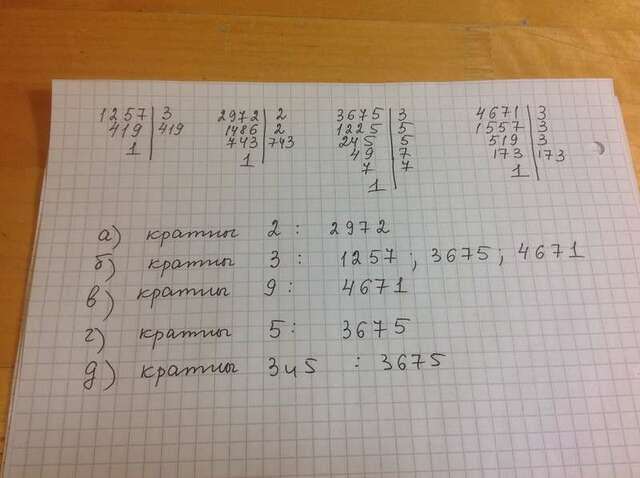 1257 | 3
419 | 419
1
2972 | 2
1486 | 2
743 | 743
1
3675 | 3
1225 | 5
245 | 5
49 | 7
7 | 7
1
4671 | 3
1557 | 3
519 | 3
173 | 173
1
а) кратны 2 : 2972
б) кратны 3 : 1257 ; 3675 ; 4671
в) кратны 9 : 4671
г) кратны 5 : 3675
д) кратны 3 и 5 : 3675